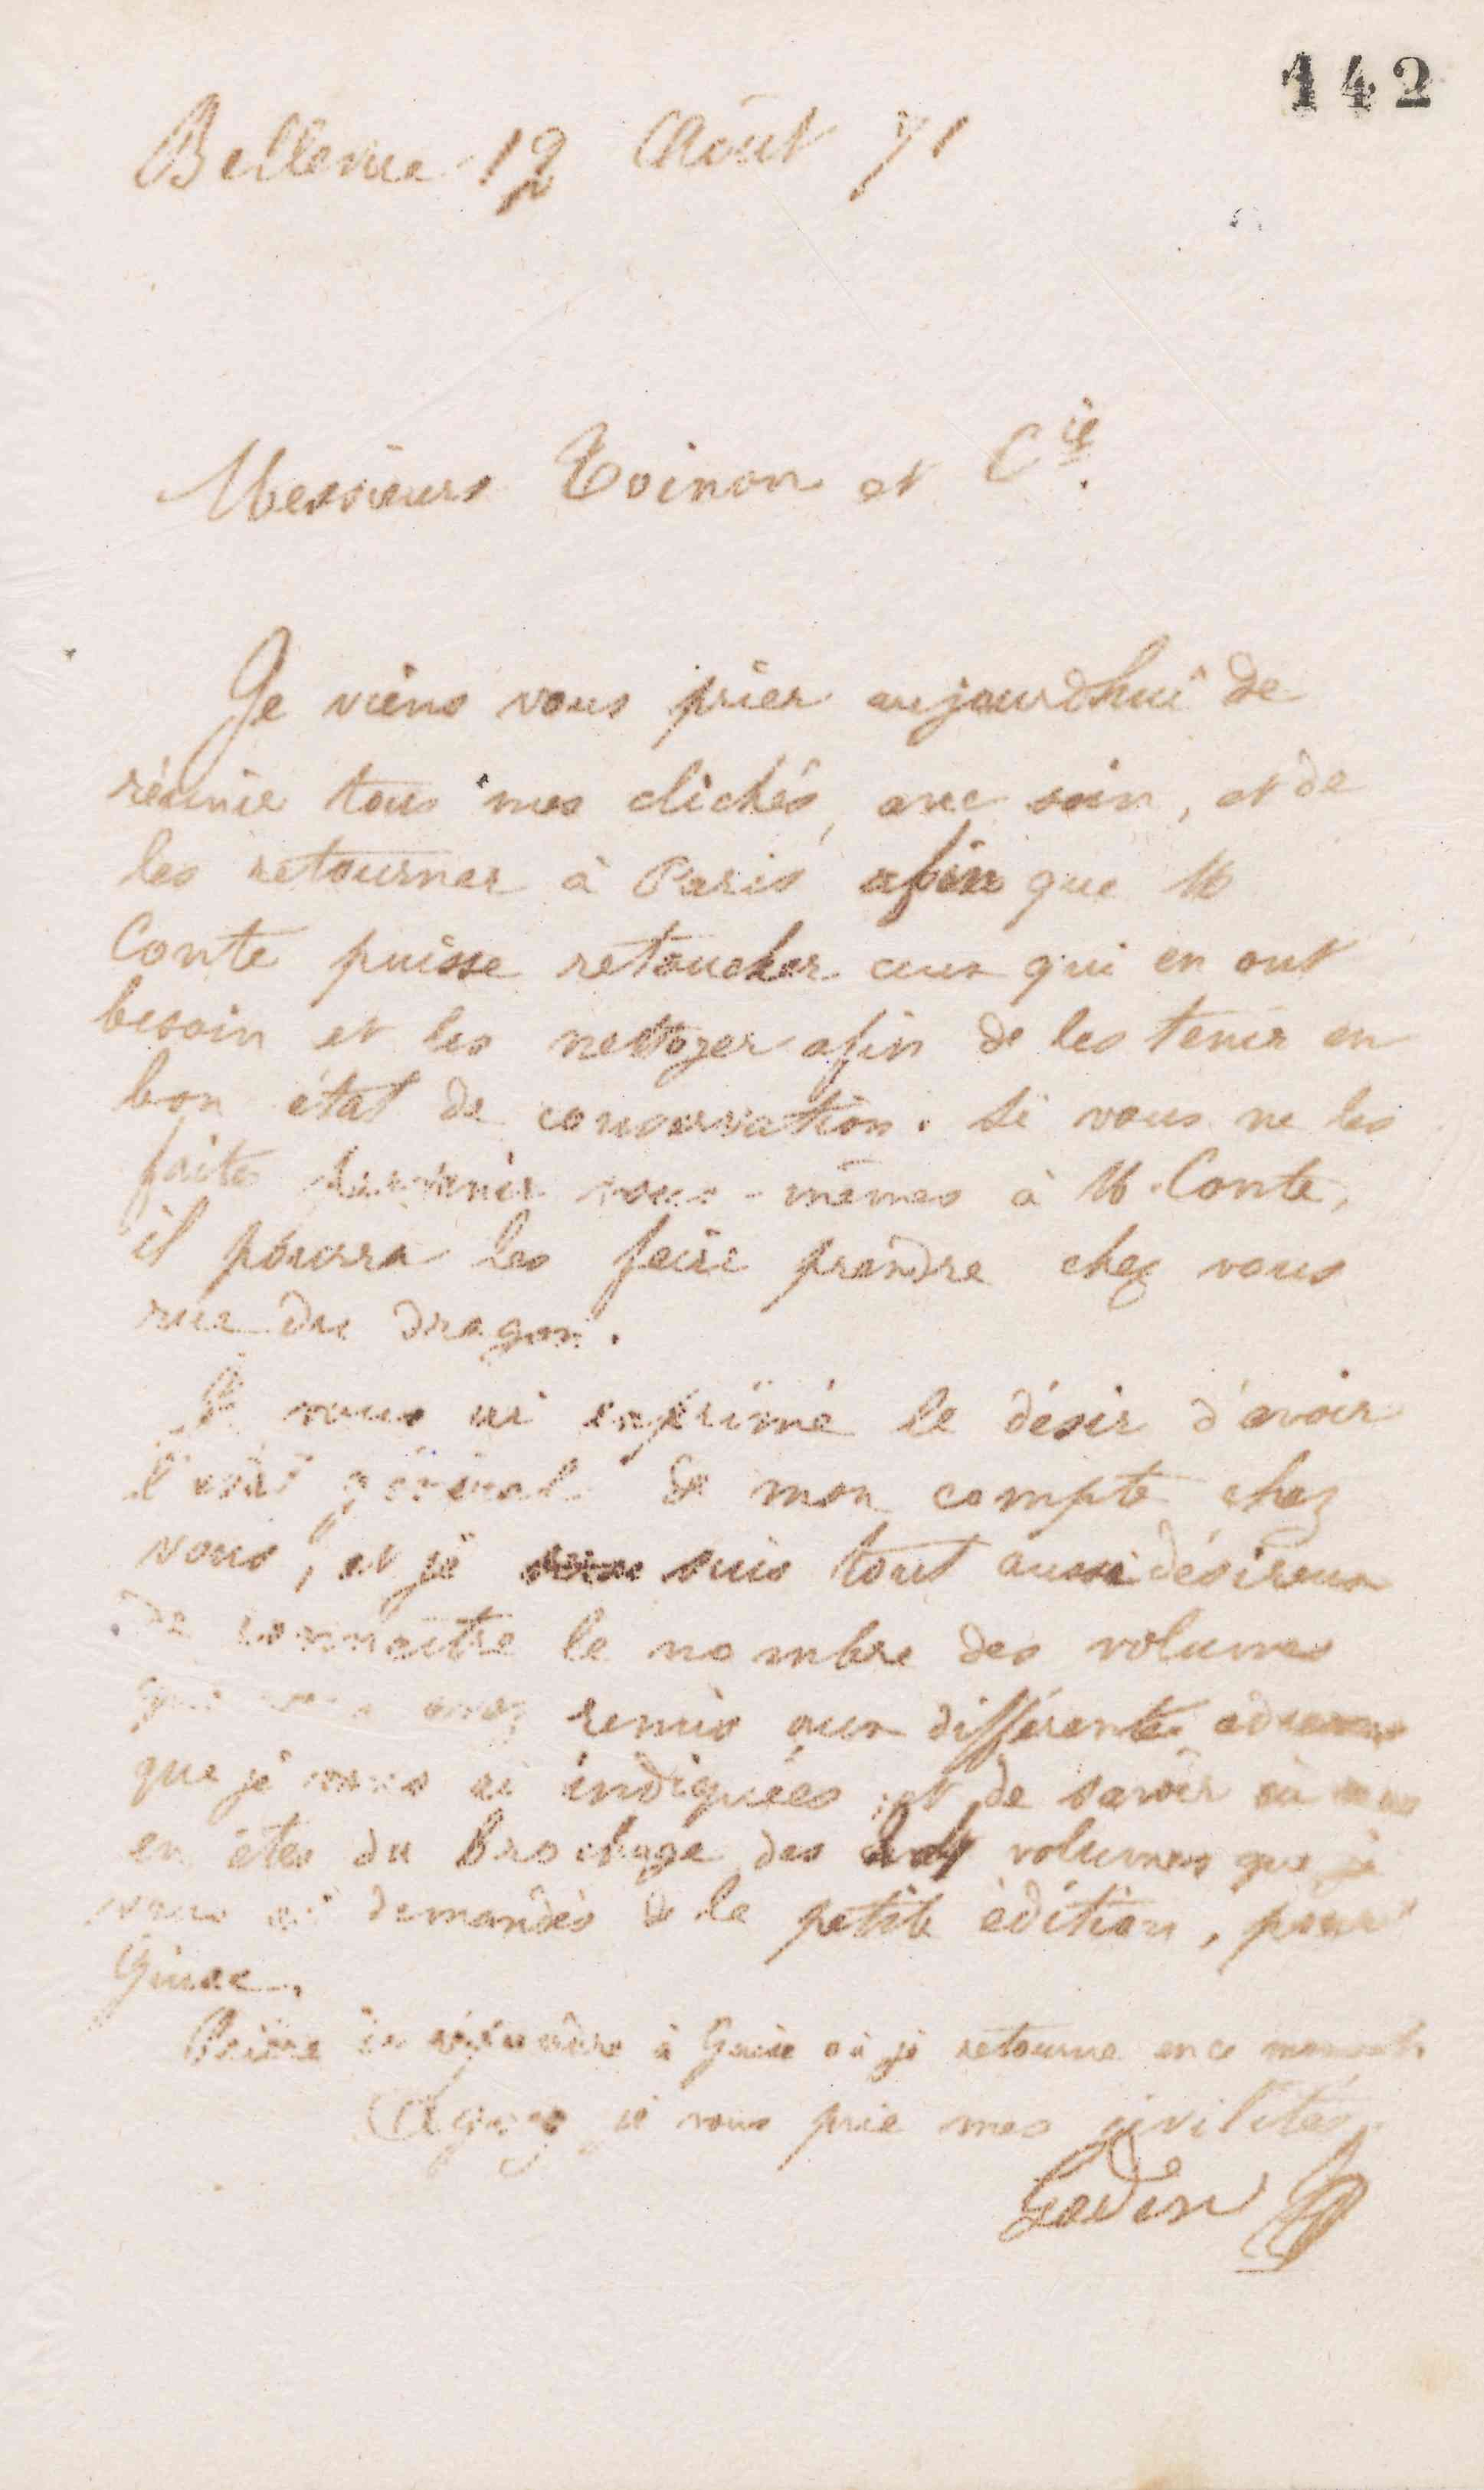 142
Bellevue 12 Août 71
Messieurs Toinon et Cie.
Je viens vous prier aujourdhui de
réunir tous mes clichés, avec soin, et de
les retourner à Paris afin que M
Conte puisse retoucher ceux qui en ont
besoin et les nettoyer afin de les tenir en
bon état de conservation. Si vous ne les
faites parvenir vous-mêmes à M. Conte,
il pourra les faire prendre chez vous
rue du Dragon.
Je vous ai exprimé le désir d'avoir
l'état général de mon compte chez
vous, et je suis tout aussi désireux
de connaître le nombre des volumes
que vous avez remis aux différentes adresses
que je vous ai indiquées et de savoir où vous
en êtes du brochage des volumes que je
vous ai demandés de la petite édition, pour
Guise.
Prière de répondre à Guise où je retourne en ce moment.
Agréez je vous prie mes civilités
Godin